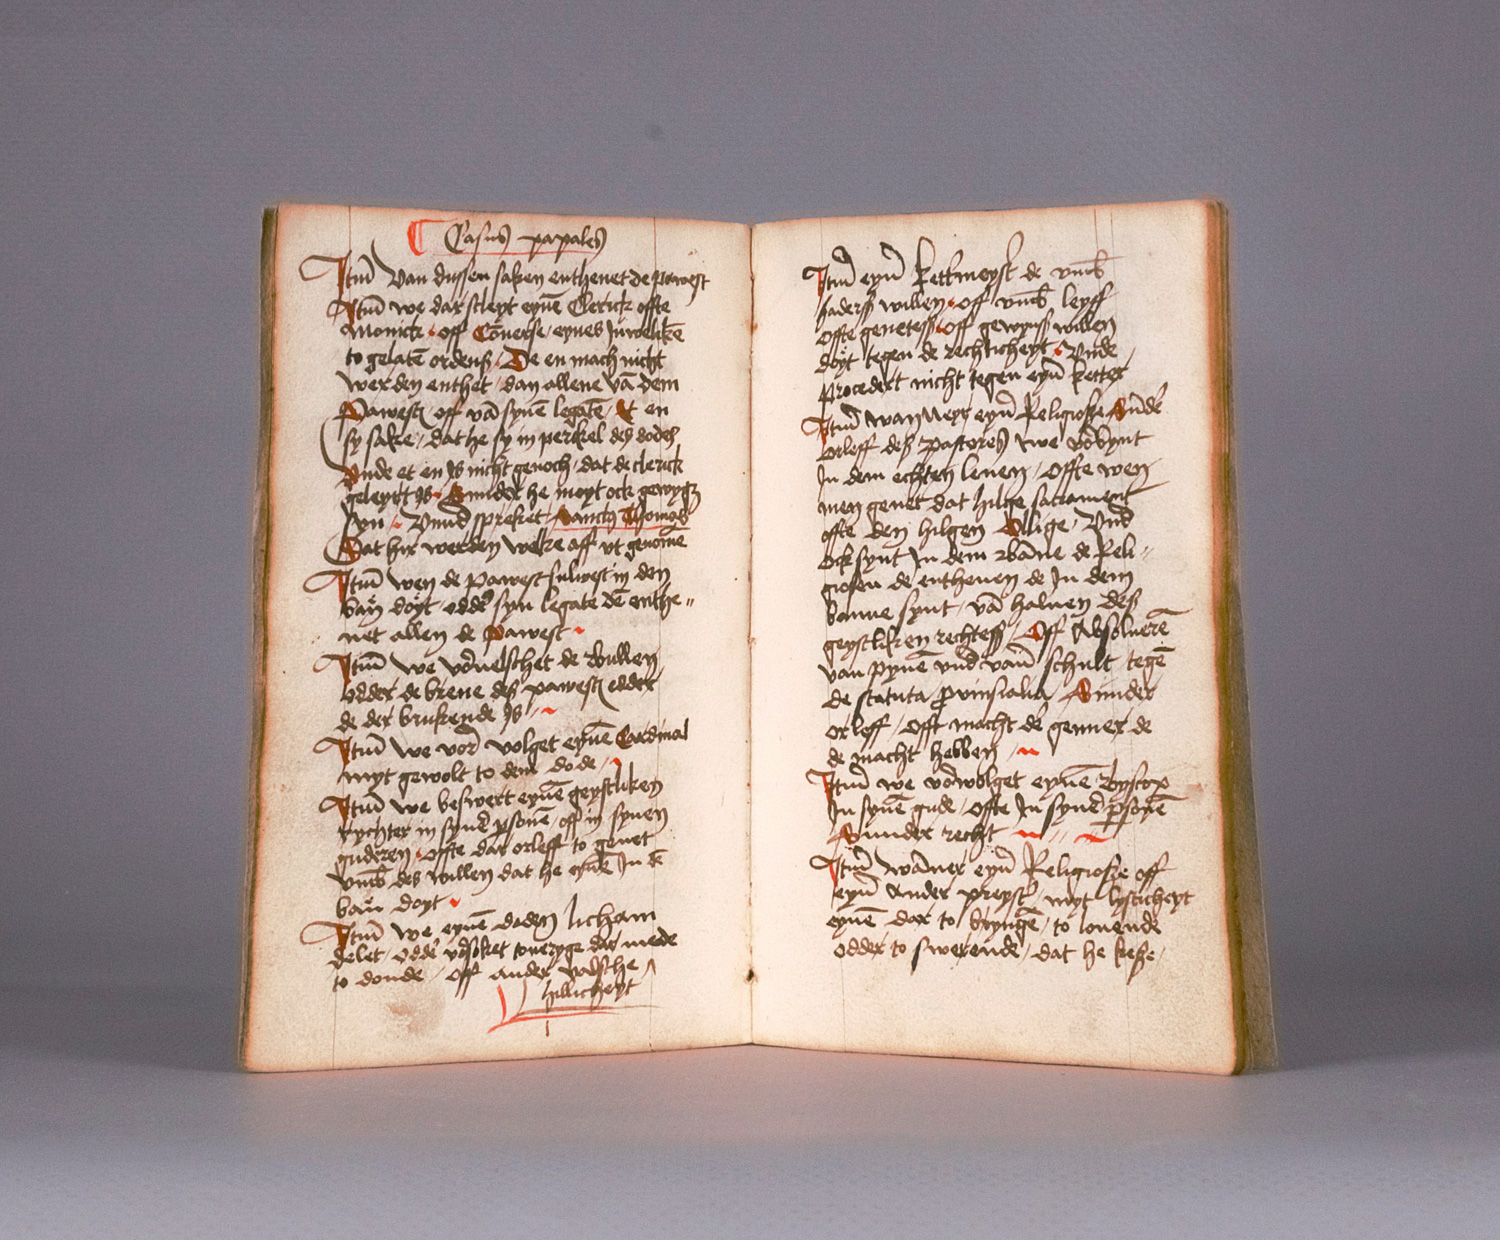 Casus papales
Itm̄ van dussen saken enthenet de pawest
Itm̄ we dar sleyt eynē Clerick offte
Monick off Cōverse eynes Juwelikē
to gelatē ordens De en mach nicht
werden enthet dan allene vā dem
Pawest off vā synē legatē Et en
sy sake dat he sy in perikel des dodes
Vnde et en Js nicht genoch dat de clerick
geleyrt Js Sunder he moyt ock gewyg
syn Vnnd spreket Sanctus Thomas
Dat hir werden welke aff vt genomē
Itm̄ wen de Pawest suluest in den
ban doyt edder syn legate dē enthe〃
net allen de Pawest
Itm̄ we vorvelschet de Bullen
edder de breue des pawest edder
de der brukende Js
Itm̄ we vor volget eynē Cardinal
myt gewolt to dem dode
Itm̄ we beswert eynē geystliken
rychter in syner psone off in synen
guderen offte dar orleff to geuet
vmb des willen dat he eynē Jn dē
ban doyt
Itm̄ we eynē doden licham
delet edder vorsoket toueryge dar mede
to donde off ander valsche
hillicheyt
Itm̄ eyn kettmeyster de vmb
haders willen off vmb leyff
offte genetess off gewyns willen
doyt tegen de rechticheyt Vnde
procedert nicht tegen eyn ketter
Itm̄ wanneyr eyn Religioße Sunder
orleff des Pastores we vorbynt
Jn dem echten leuen Offte wen
men geuet dat hilge sacrament
offte den hilgen Ollige Vnd
ock synt Jn dem Banne de Reli〃
giosen de enthenen de Jn dem
banne synt vā haluen des
geystliken rechtes Off Absoluerē
van pynē vnd van schult tegē
de statuta provinsialia Sunder
orleff offt macht der genner de
de macht hebben
Itm̄ we vorvolget eynē Byscop
Jn synē gude offte Jn syner psonē
Sunder recht
Itm̄ wāner eyn Religioße off
eyn ander preyster myt lysticheyt
eynē dar to bryngē to louende
odder to swerende dat he keße